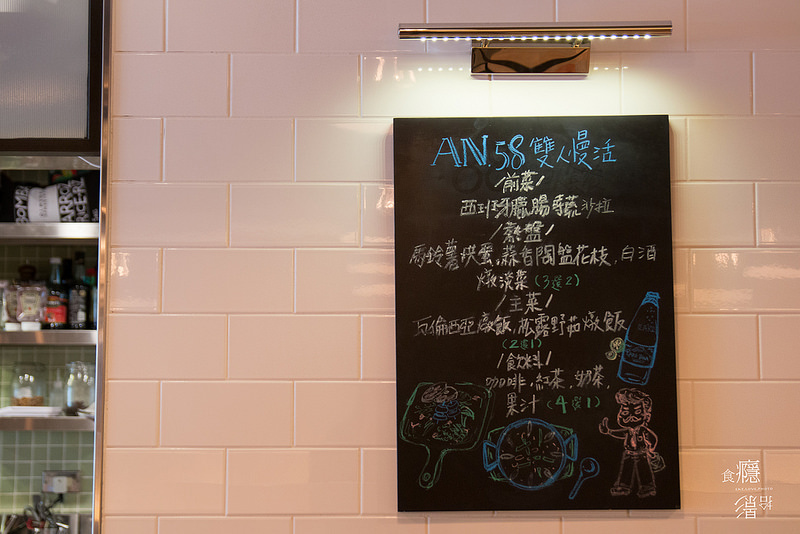 AN.58 雙人慢活
/前菜/
西班牙臘腸時蔬沙拉
/熱盤/
馬鈴薯烘蛋.蒜香陶盤花枝.白酒
燉淡菜(3選2)
/主菜/
瓦倫西亞燉飯.松露野菇燉飯
(2選1)
/飲料/
咖啡.紅茶.奶茶.
果汁(4選1)
BOMB
ARROZ
食癮